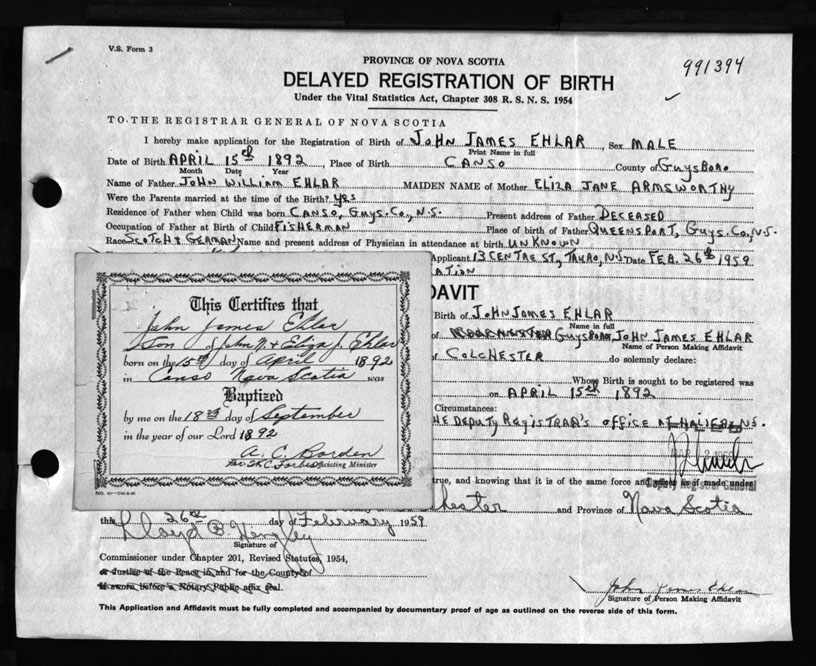 V.S. Form 3
PROVINCE OF NOVA SCOTIA
991394
DELAYED REGISTRATION OF BIRTH
Under the Vital Statistics Act, Chapter 308 R. S. N. S. 1954
TO THE REGISTRAR GENERAL OF NOVA SCOTIA
I hereby make application for the Registration of Birth of JOHN JAMES EHLAR, Sex MALE
Print Name in full
Date of Birth APRIL 15th 1892, Place of Birth CANSO County of GUYSBORO
Month Date Year
Name of Father JOHN WILLIAM EHLAR MAIDEN NAME of Mother ELIZA JANE ARMSWORTHY
Were the Parents married at the time of the Birth? YES
Residence of Father when Child was born CANSO, GUYS. CO., N.S. Present address of Father DECEASED
Occupation of Father at Birth of Child FISHERMAN Place of birth of Father QUEENSPORT, GUYS. CO., N.S.
Race SCOTCH & GERMAN Name and present address of Physician in attendance at birth UNKNOWN
Applicant 13 CENTRE ST., TRURO, N.S Date FEB. 26th 1959
ATION
DAVIT
Birth of JOHN JAMES EHLAR
Name in full
of GUYSBORO, JOHN JAMES EHLAR
Name of Person Making Affidavit
COLCHESTER do solemnly declare:
Whose Birth is sought to be registered was
on APRIL 15th 1892
Circumstances:
HE DEPUTY REGISTRAR'S OFFICE AT HALIFAX N.S.
Deputy Registrar General
true, and knowing that it is of the same force and effect as if made under
chester and Province of Nova Scotia
This Certifies that
John James Ehlar
Son of John W. & Eliza J. Ehlar
born on the 15th day of April 1892
in Canso Nova Scotia was
Baptized
by me on the 18th day of September
in the year of our Lord 1892
A. C. Borden
Officiating Minister
this 26th day of February 1959
Lloyd B
Signature of
Commissioner under Chapter 201, Revised Statutes, 1954,
or Justice of the Peace in and for the County of
If sworn before a Notary Public affix seal.
John James Ehlar
Signature of Person Making Affidavit
This Application and Affidavit must be fully completed and accompanied by documentary proof of age as outlined on the reverse side of this form.